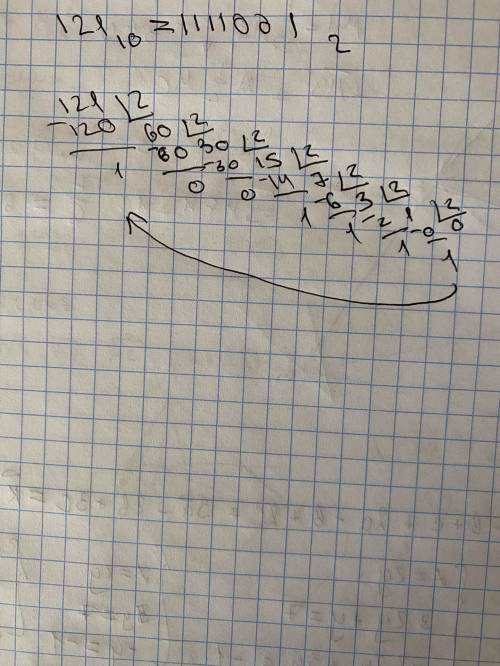 121₁₀ = 1111001₂
121 2
-120 60 2
1 -60 30 2
0 -30 15 2
0 -14 7 2
1 -6 3 2
1 -2 1 2
1 -0 0
1